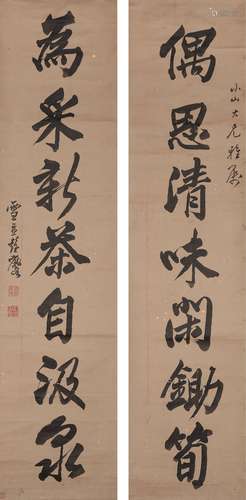 小山大兄雅屬
偶思清味閑鋤筍
為采新茶自汲泉